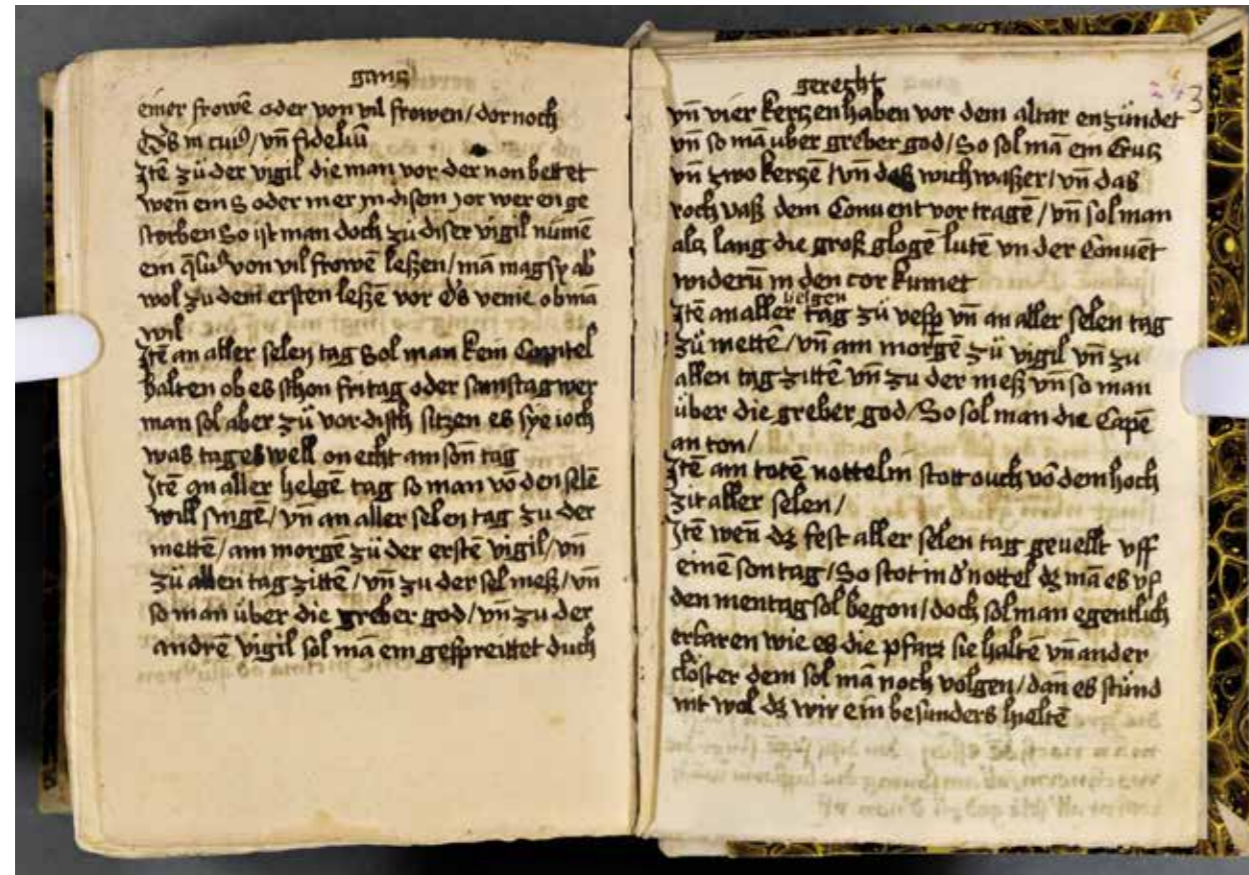 gang
einer frowē oder von vil frowen / dornoch
vn̄ fideliū
Itē zů der vigil die man vor der non bettet
wen̄ ein s oder mer in disem jor wer en ge
storben So ist man doch zu diser vigil nūmē
ein von vil frowē leßen / mā mag sy ab
wol zu dem ersten leßē vor venie ob mā
wil
Itē an aller selen tag Sol man kein Capitel
halten ob es schon fritag oder samstag wer
man sol aber zů vor disch sitzen es sye ioch
was tages well on echt am sōn tag
Itē an aller helgē tag so man vō den selē
will singē / vn̄ an aller selen tag zu der
mettē / am morgē zů der erstē vigil / vn̄
zů allen tag zittē / vn̄ zu der sel meß / vn̄
so man über die greber god / vn̄ zu der
andrē vigil sol mā ein gespreittet duch
gereght
vn̄ vier kerczen haben vor dem altar enzündet
vn̄ so mā uber greber god / So sol mā ein Crucz
vn̄ zwo kerczē / vn̄ das wichwaßer / vn̄ das
roch vaß dem Conuent vor tragē / vn̄ sol man
alcz lang die groß glogē lutē vn der Conuēt
widerū in den cor kumet
Itē an aller helgen tag zů vesp vn̄ an aller selen tag
zů mettē / vn̄ am morgē zů vigil vn̄ zu
allen tag zittē vn̄ zu der meß vn̄ so man
über die greber god / So sol man die Capē
an ton /
Itē am totē nottel in stott ouch vō dem hoch
zit aller selen /
Itē wen̄ dz fest aller selen tag geuellt vff
einē son tag / So stot in d' nottel dz mā es vf
den mentag sol begon / doch sol man egentlich
erfaren wie es die pfarr hie haltē vn̄ ander
clöster dem sol mā noch volgen / dan̄ es stünd
nit wol dz wir ein besunders hieltē